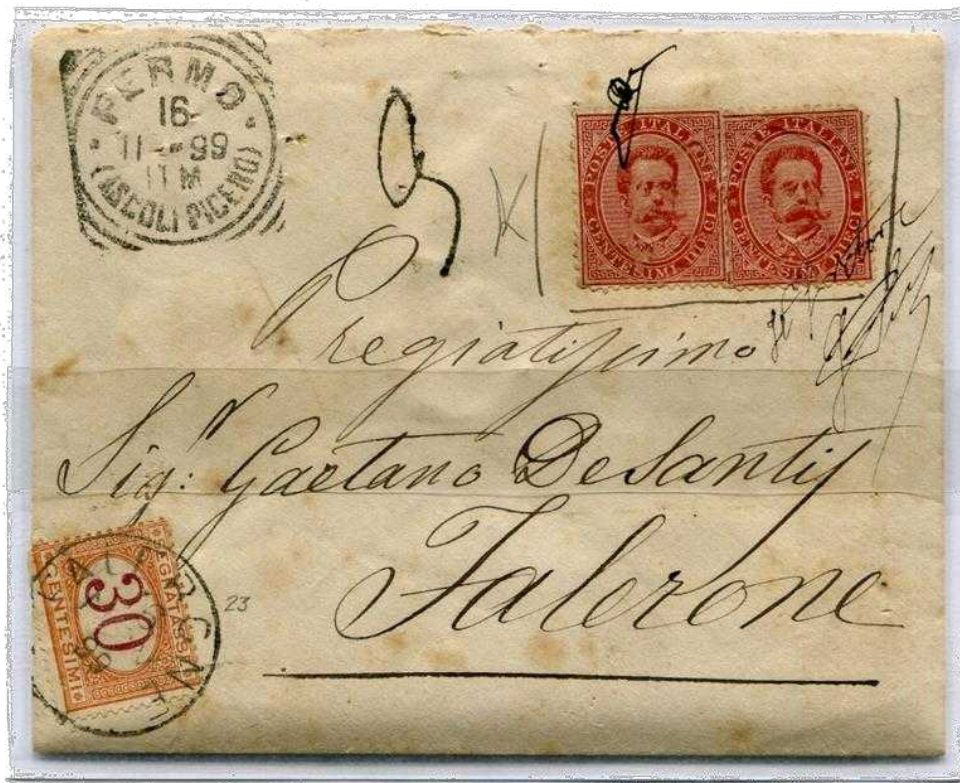 FERMO
16
11 - 99
11 M
(ASCOLI PICENO)
POSTE ITALIANE
CENTESIMI DIECI
POSTE ITALIANE
CENTESIMI DIECI
Pregiatissimo
Sig.r Gaetano De Santis
Falerone
SEGNATASSE
30
CENTESIMI
23